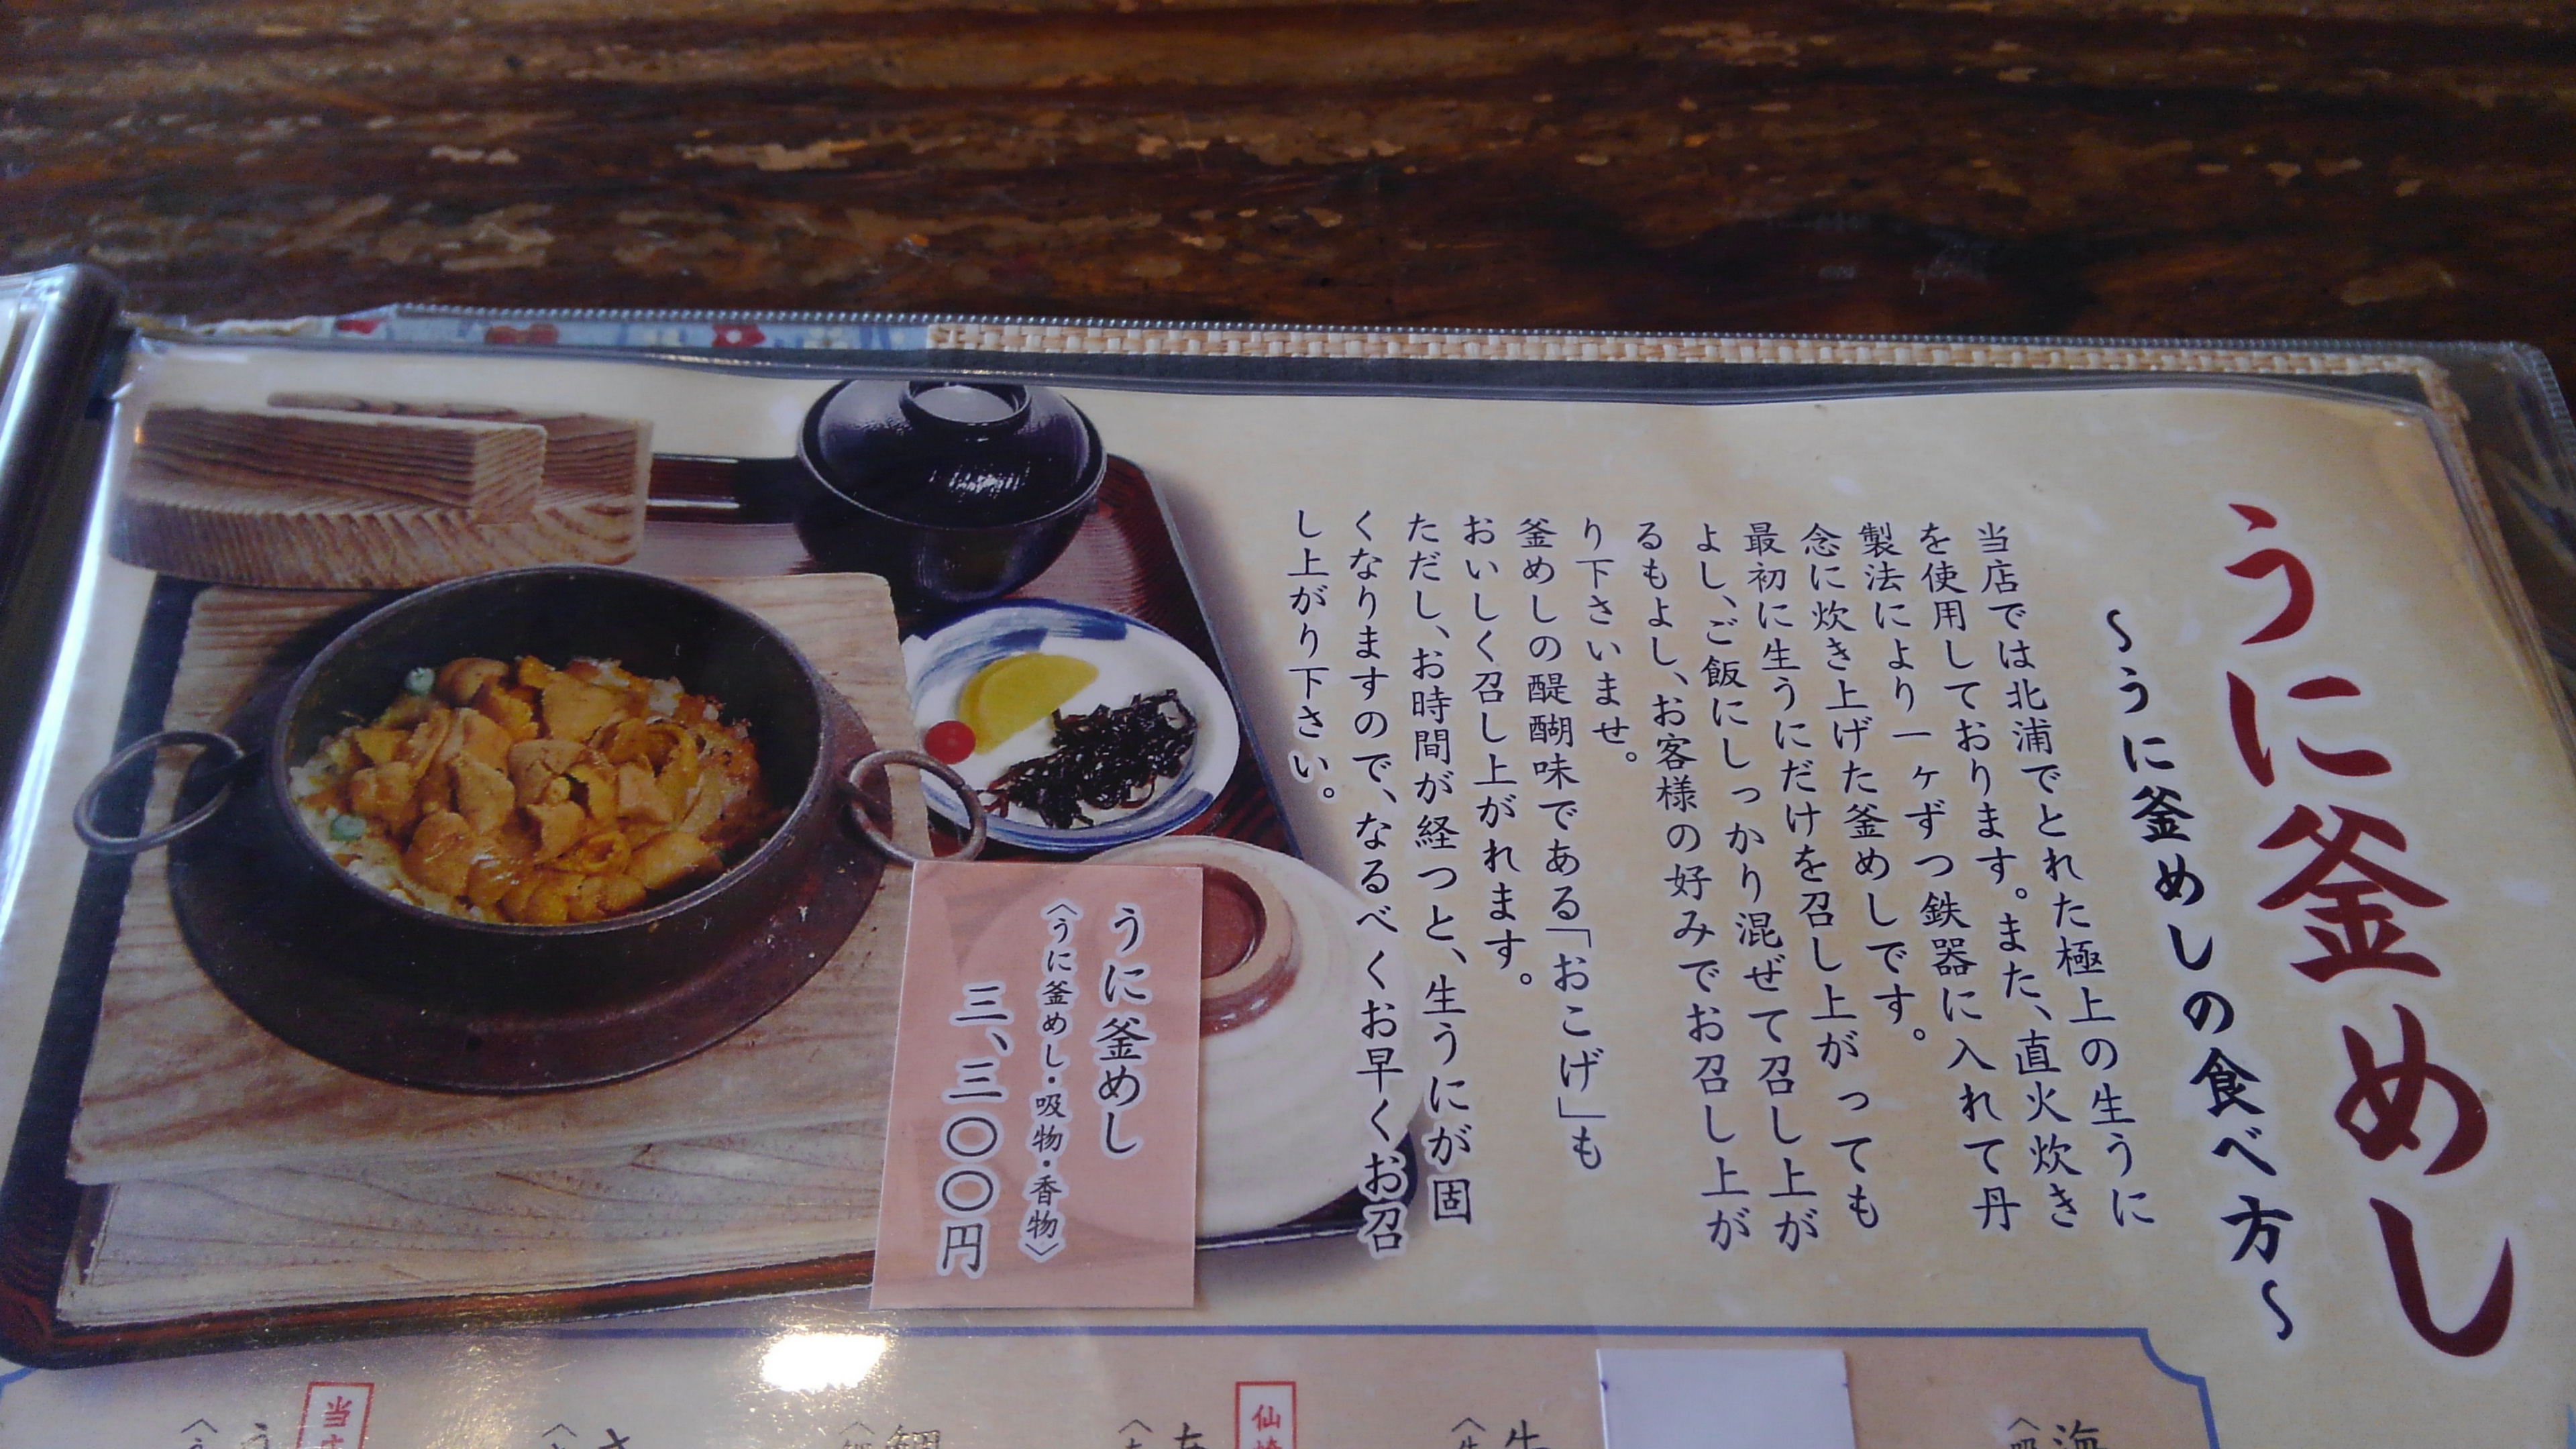 うに釜めし
～うに釜めしの食べ方～
当店では北浦でとれた極上の生うに
を使用しております。また、直火炊き
製法により一ヶずつ鉄器に入れて丹
念に炊き上げた釜めしです。
最初に生うにだけを召し上がっても
よし、ご飯にしっかり混ぜて召し上が
るもよし、お客様の好みでお召し上が
り下さいませ。
釜めしの醍醐味である「おこげ」も
おいしく召し上がれます。
ただし、お時間が経つと、生うにが固
くなりますので、なるべくお早くお召
し上がり下さい。
うに釜めし
〈うに釜めし・吸物・香物〉
三、三〇〇円
海
牛
仙
鯛
当